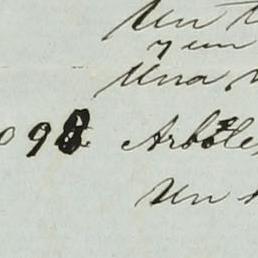 Un
y un
Una
98 Arboles
Un